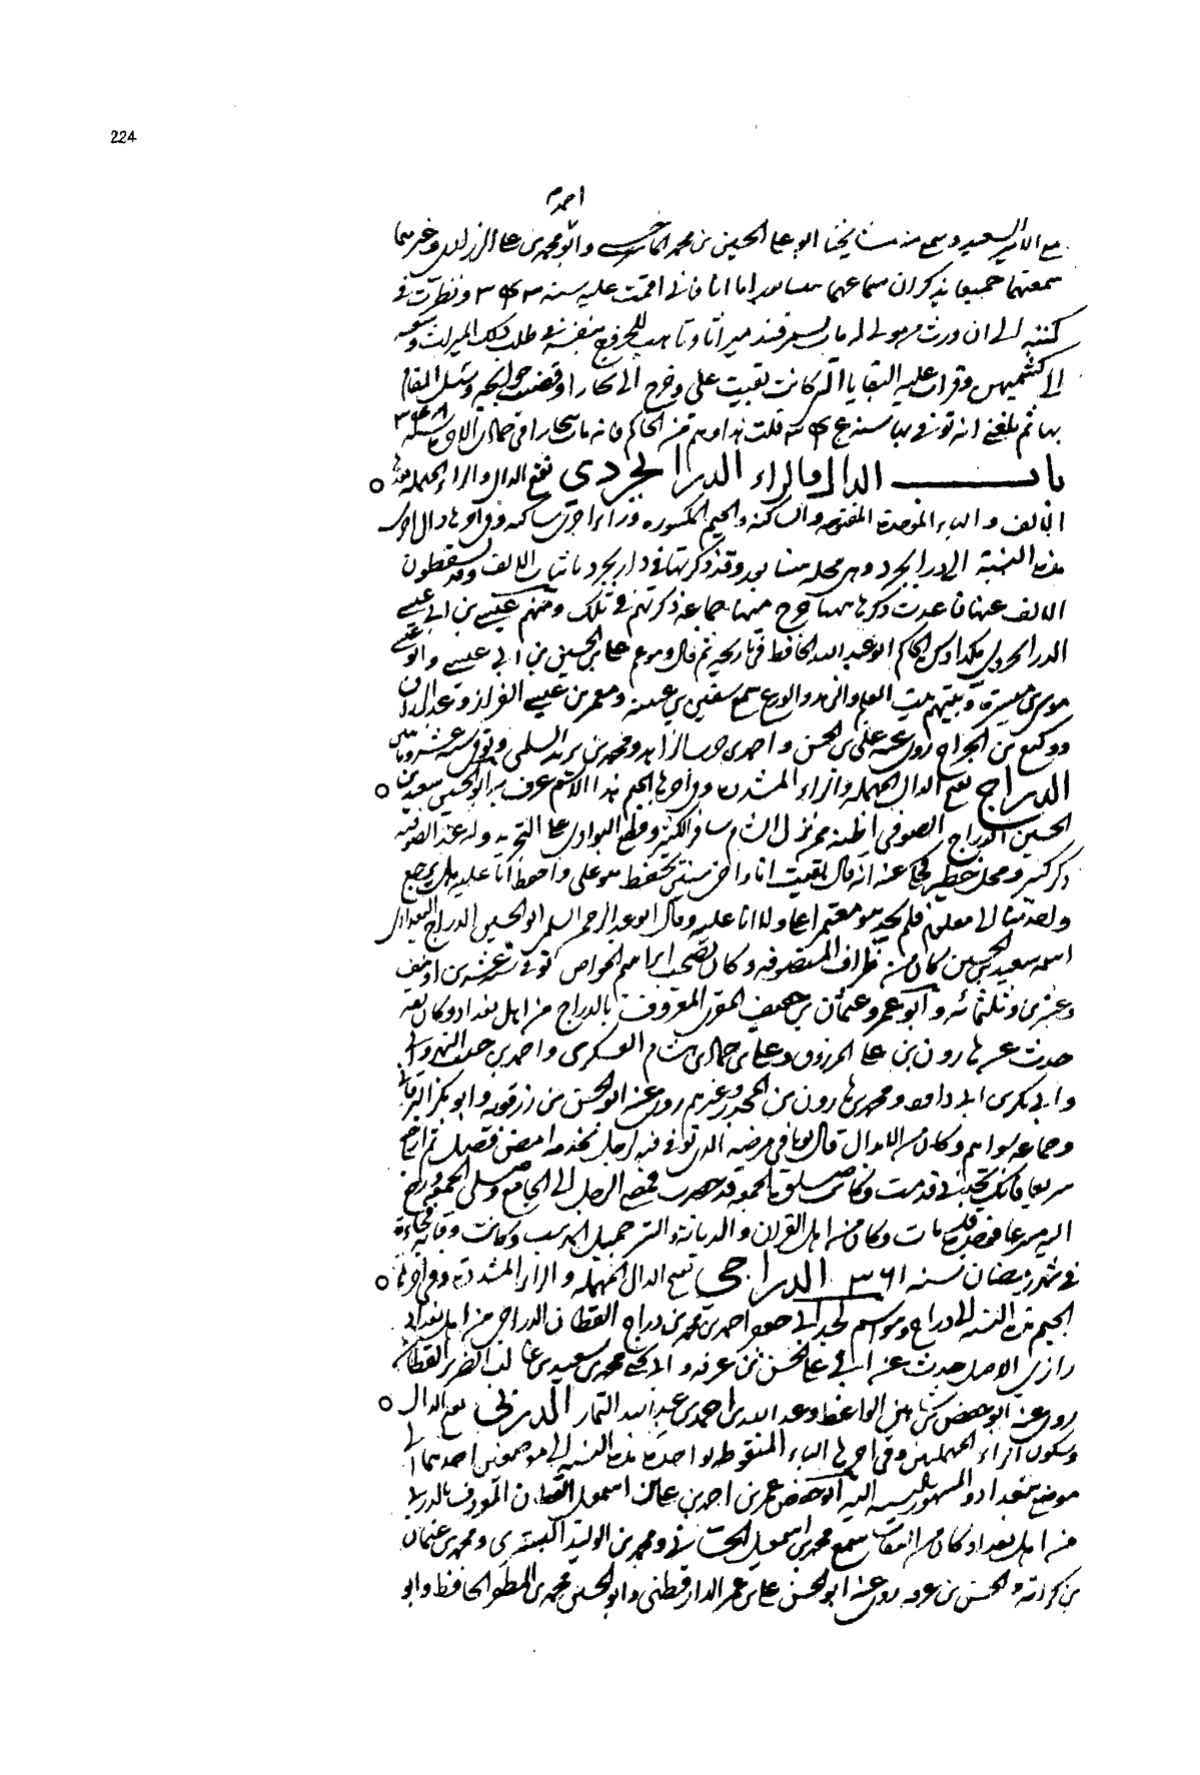 224
احمد
مع الامير السعيد وسمع منه مشايخنا ابو على الحسين بن محمد الماسرجسى وابو محمد بن على وغيرهما
سمعتهما جميعا يذكران سماعهما اتانى اقمت عليه سنه ونظرت فى
كتبه الى ان ورث مولى له بسمرقند ميراثا وتاهب للخروج بنفسه فى طلب ذلك الميراث
الى كشميهن وقرات عليه البقايا التى كانت بقيت على وخرج الى بخارا
بها ثم بلغنى انه توفى بها سنه قلت هذا وهم من الحاكم فانه مات ببخارا فى جمادى الاولى سنه ٣٤٨
باب الدال والراء الدرابجردي بفتح الدال والراء المهملة بعدها
الالف والباء الموحدة المفتوحة والساكنة والجيم المكسورة وراء اخرى ساكنه وفى اخرها دال اخرى
هذه النسبة الى درابجرد وهى محله بنيسابور وقد ذكرتها فى دارابجرد باثبات الالف وقد يسقطون
الالف عنها فاعدت ذكرها ههنا خرج منها جماعة ذكرتهم فى تلك ومنهم عيسى بن ابى عيسى
الدرابجردى هكذا ذكره الحاكم ابو عبد الله الحافظ فى تاريخه ثم قال وهو عم على بن الحسن بن ابى عيسى وابو عيسى
موسى بن ميسرة وبيتهم بيت العلم والزهد والورع سمع سفين بن عيينه ومعمر بن عيسى القزاز
ووكيع بن الجراح روى عنه على بن الحسن و احمد بن حرب الزاهد ومحمد بن يزيد السلمى وتوفى سنه عشر ومائتين
الدراج بفتح الدال المهملة والراء المشددة وفى اخرها الجيم هذا الاسم عرف به ابو الحسين سعيد بن
الحسين الدراج الصوفى اظنه ممن نزل الشام سافر الكثير وقطع البوادى على التجريد وله عند الصوفيه
ذكر كبير ومحل خطير حكى عنه انه قال بقيت انا واخى سنتين يحفظ هو على واحفظ انا عليه هل يرجع
واحد منا الى معلوم فلم يجد هو مغمزا على ولا انا عليه وقال ابو عبد الرحمن السلمى ابو الحسين الدراج البغدادى
اسمه سعيد بن الحسين كان من ظراف المتصوفه وكان يصحب ابراهيم الخواص توفى سنه عشرين او نيف
وعشرين وثلثمائه وابو عمرو عثمان بن عمر بن خفيف المقرى المعروف بالدراج من اهل بغداد وكان ثقه
حدث عن هارون بن على المزوق وعلى بن حماد بن هشام العسكرى واحمد بن خلف النهروانى
وابى بكر بن ابى داود ومحمد بن هارون بن المجدر وغيرهم روى عنه ابو الحسن بن رزقويه وابو بكر البرقانى
وجماعه سواهم وكان من الابدال قال يوما فى مرضه الذى توفى فيه لرجل يخدمه امض فصل ثم ارجع
سريعا فانك تجدنى قد مت وكانت صلوة الجمعه قد حضرت فمضى الرجل الى الجامع وصلى الجمعه ورجع
اليه مسرعا فوجده قد مات وكان من اهل القران والديانة والستر جميل المذهب وكانت وفاته فجاءة
فى شهر رمضان سنه ٣٦١ الدراجى بفتح الدال المهملة والراء المشددة وفى اخرها
الجيم هذه النسبه الى دراج وهو اسم لجد ابى جعفر احمد بن محمد بن دراج القطان الدراجى من اهل بغداد
رازى الاصل حدث عن ابى على الحسن بن عرفه وابى يحيى محمد بن سعيد بن غالب الضرير القطان
روى عنه ابو حفص بن شاهين الواعظ وعبد الله بن احمد بن عبد الله التمار الدربى بفتح الدال
وسكون الراء المهملتين وفى اخرها الباء المنقوطه بواحدة هذه النسبه الى موضعين احدهما الى
موضع ببغداد والمشهور بالنسبه اليه ابو حفص عمر بن احمد بن على بن اسمعيل القطان المعروف بالدربى
من اهل بغداد كان من الثقات سمع محمد بن اسمعيل الحسانى ومحمد بن الوليد البسرى ومحمد بن عثمان
بن كرامه والحسن بن عرفه روى عنه ابو الحسن على بن عمر الدارقطنى وابو الحسين محمد بن المظفر الحافظ وابو